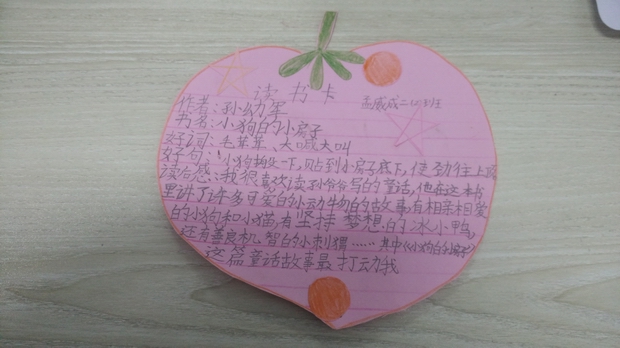 读书卡
孟威成二(2)班
作者:孙幼军
书名:小狗的小房子
好词:毛茸茸、大喊大叫
好句:小狗掉头一下,贴到小房子底下,使劲往上
读后感:我很喜欢读孙爷爷写的童话,他在这本书
里讲了许多可爱的小动物的故事,有相亲相爱
的小狗和小猫,有坚持梦想的冰小鸭,
还有善良机智的小刺猬……其中《小狗的小房子》
这篇童话故事最打动我